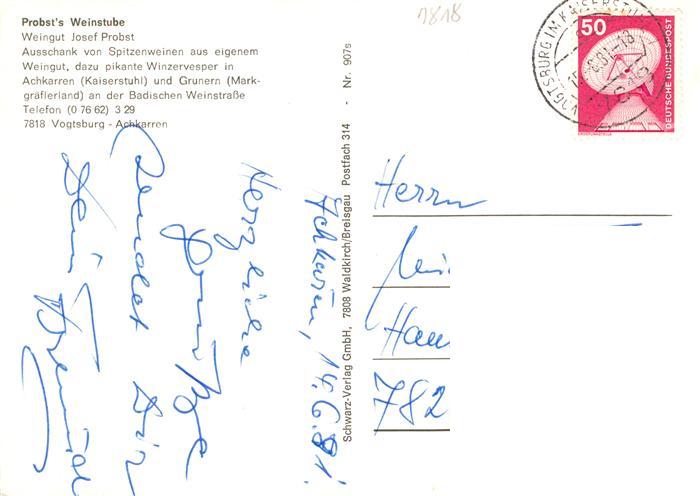 Probst's Weinstube
Weingut Josef Probst
Ausschank von Spitzenweinen aus eigenem
Weingut, dazu pikante Winzervesper in
Achkarren (Kaiserstuhl) und Grunern (Mark-
gräflerland) an der Badischen Weinstraße
Telefon (0 76 62) 3 29
7818 Vogtsburg - Achkarren
7818
Achkarren, 14.6.81.
Herzliche
Grüße
sendet Dir
Dein Freund
Schwarz-Verlag GmbH, 7808 Waldkirch/Breisgau Postfach 314 - Nr. 907s
VOGTSBURG IM KAISERSTUHL
7818
50
DEUTSCHE BUNDESPOST
ERDEFUNKSTELLE
Herrn
782